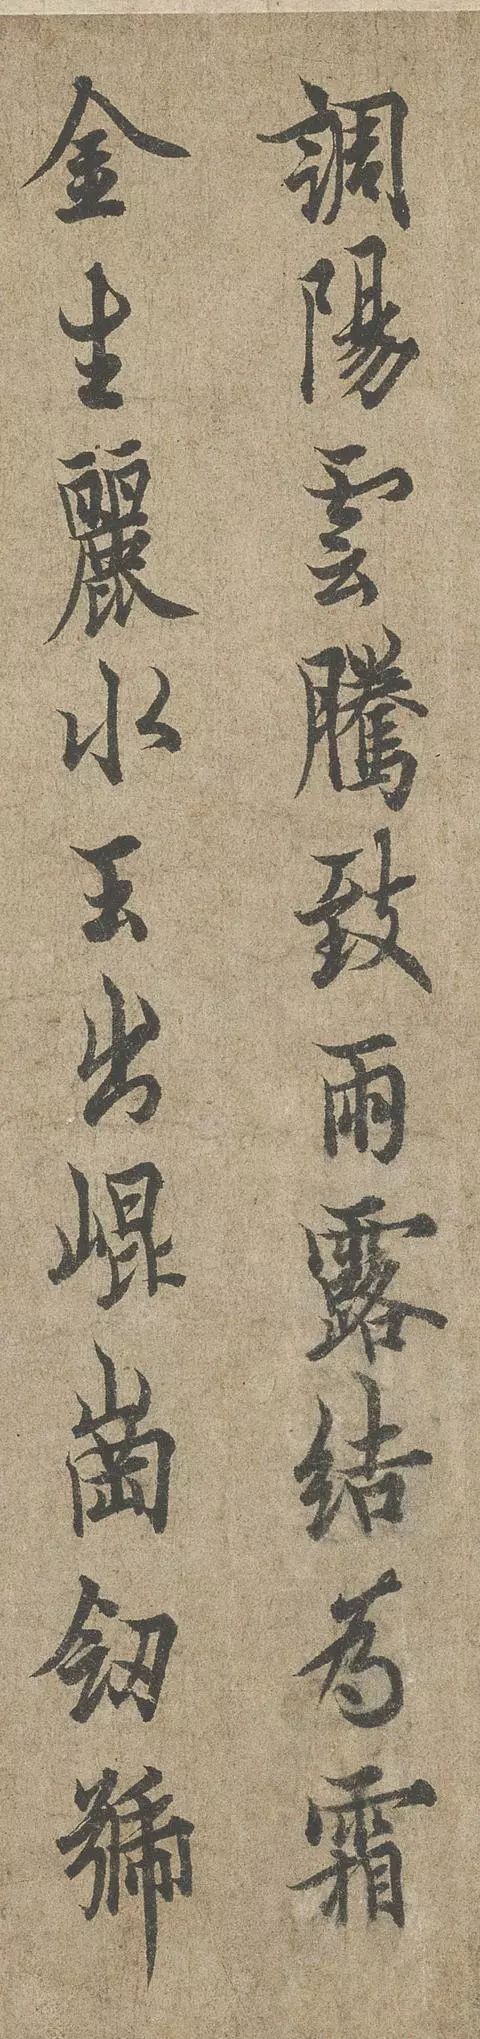 調陽雲騰致雨露結為霜
金生麗水玉出崐崗劒號